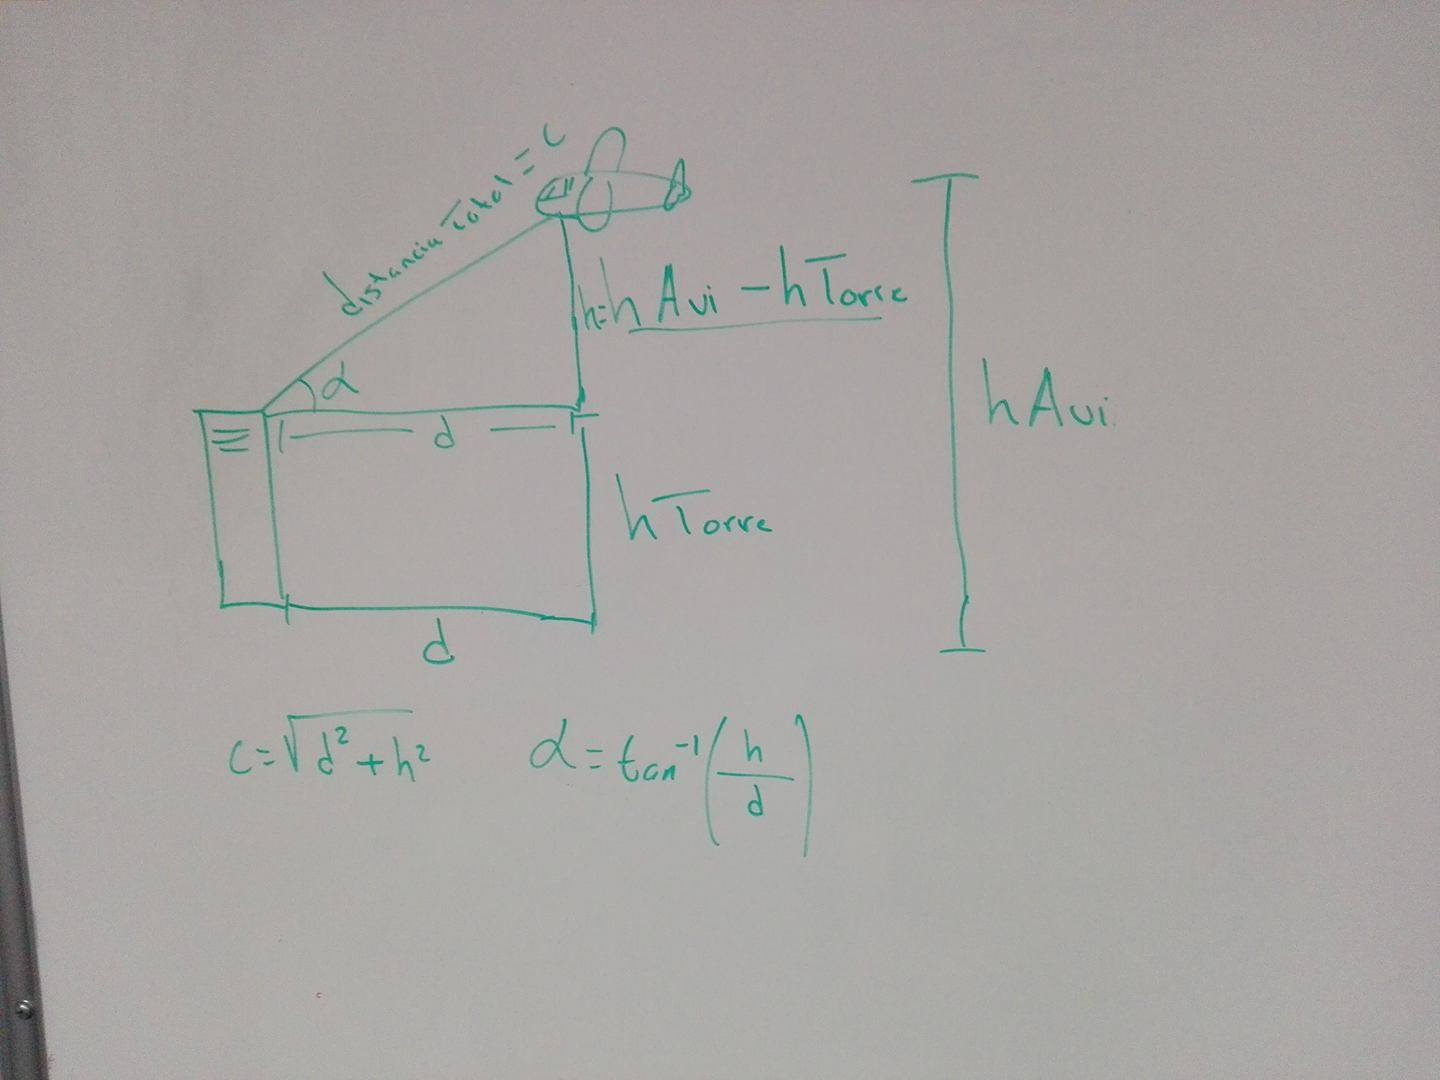 distancia Total = c
h=hAvi - hTorre
α
d
hAvi
hTorre
d
c=√d²+h²
α = tan⁻¹(h/d)